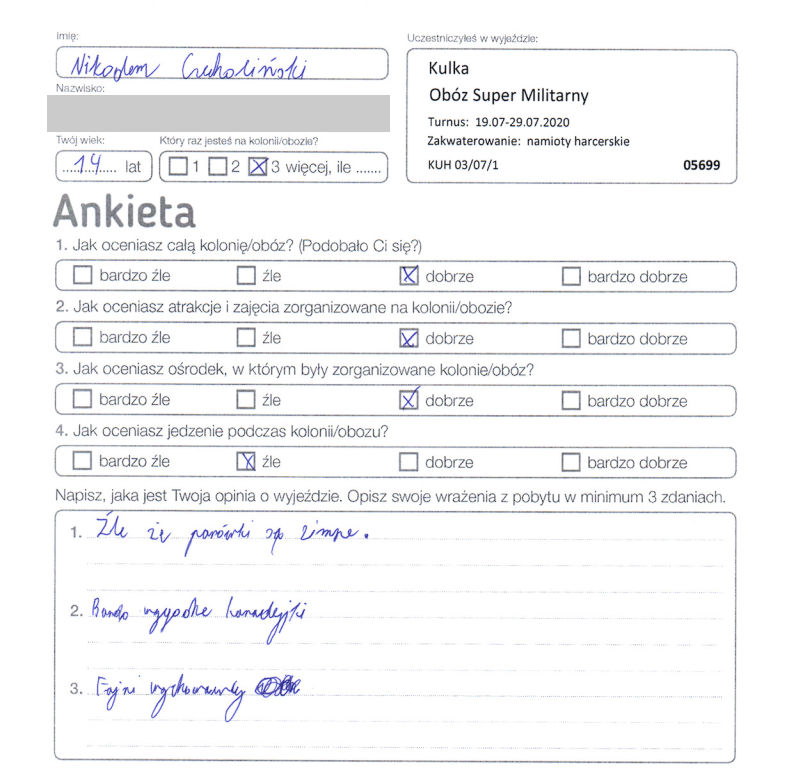 Imię:
Nikodem
Nazwisko:
Twój wiek:
14 lat
Który raz jesteś na kolonii/obozie?
1 2 3 więcej, ile .......
Uczestniczyłeś w wyjeździe:
Kulka
Obóz Super Militarny
Turnus: 19.07-29.07.2020
Zakwaterowanie: namioty harcerskie
KUH 03/07/1 05699
Ankieta
1. Jak oceniasz całą kolonię/obóz? (Podobało Ci się?)
bardzo źle źle dobrze bardzo dobrze
2. Jak oceniasz atrakcje i zajęcia zorganizowane na kolonii/obozie?
bardzo źle źle dobrze bardzo dobrze
3. Jak oceniasz ośrodek, w którym były zorganizowane kolonie/obóz?
bardzo źle źle dobrze bardzo dobrze
4. Jak oceniasz jedzenie podczas kolonii/obozu?
bardzo źle źle dobrze bardzo dobrze
Napisz, jaka jest Twoja opinia o wyjeździe. Opisz swoje wrażenia z pobytu w minimum 3 zdaniach.
1. Źle że parówki są zimne.
2. kanadyjki
3. Fajni wychowawcy